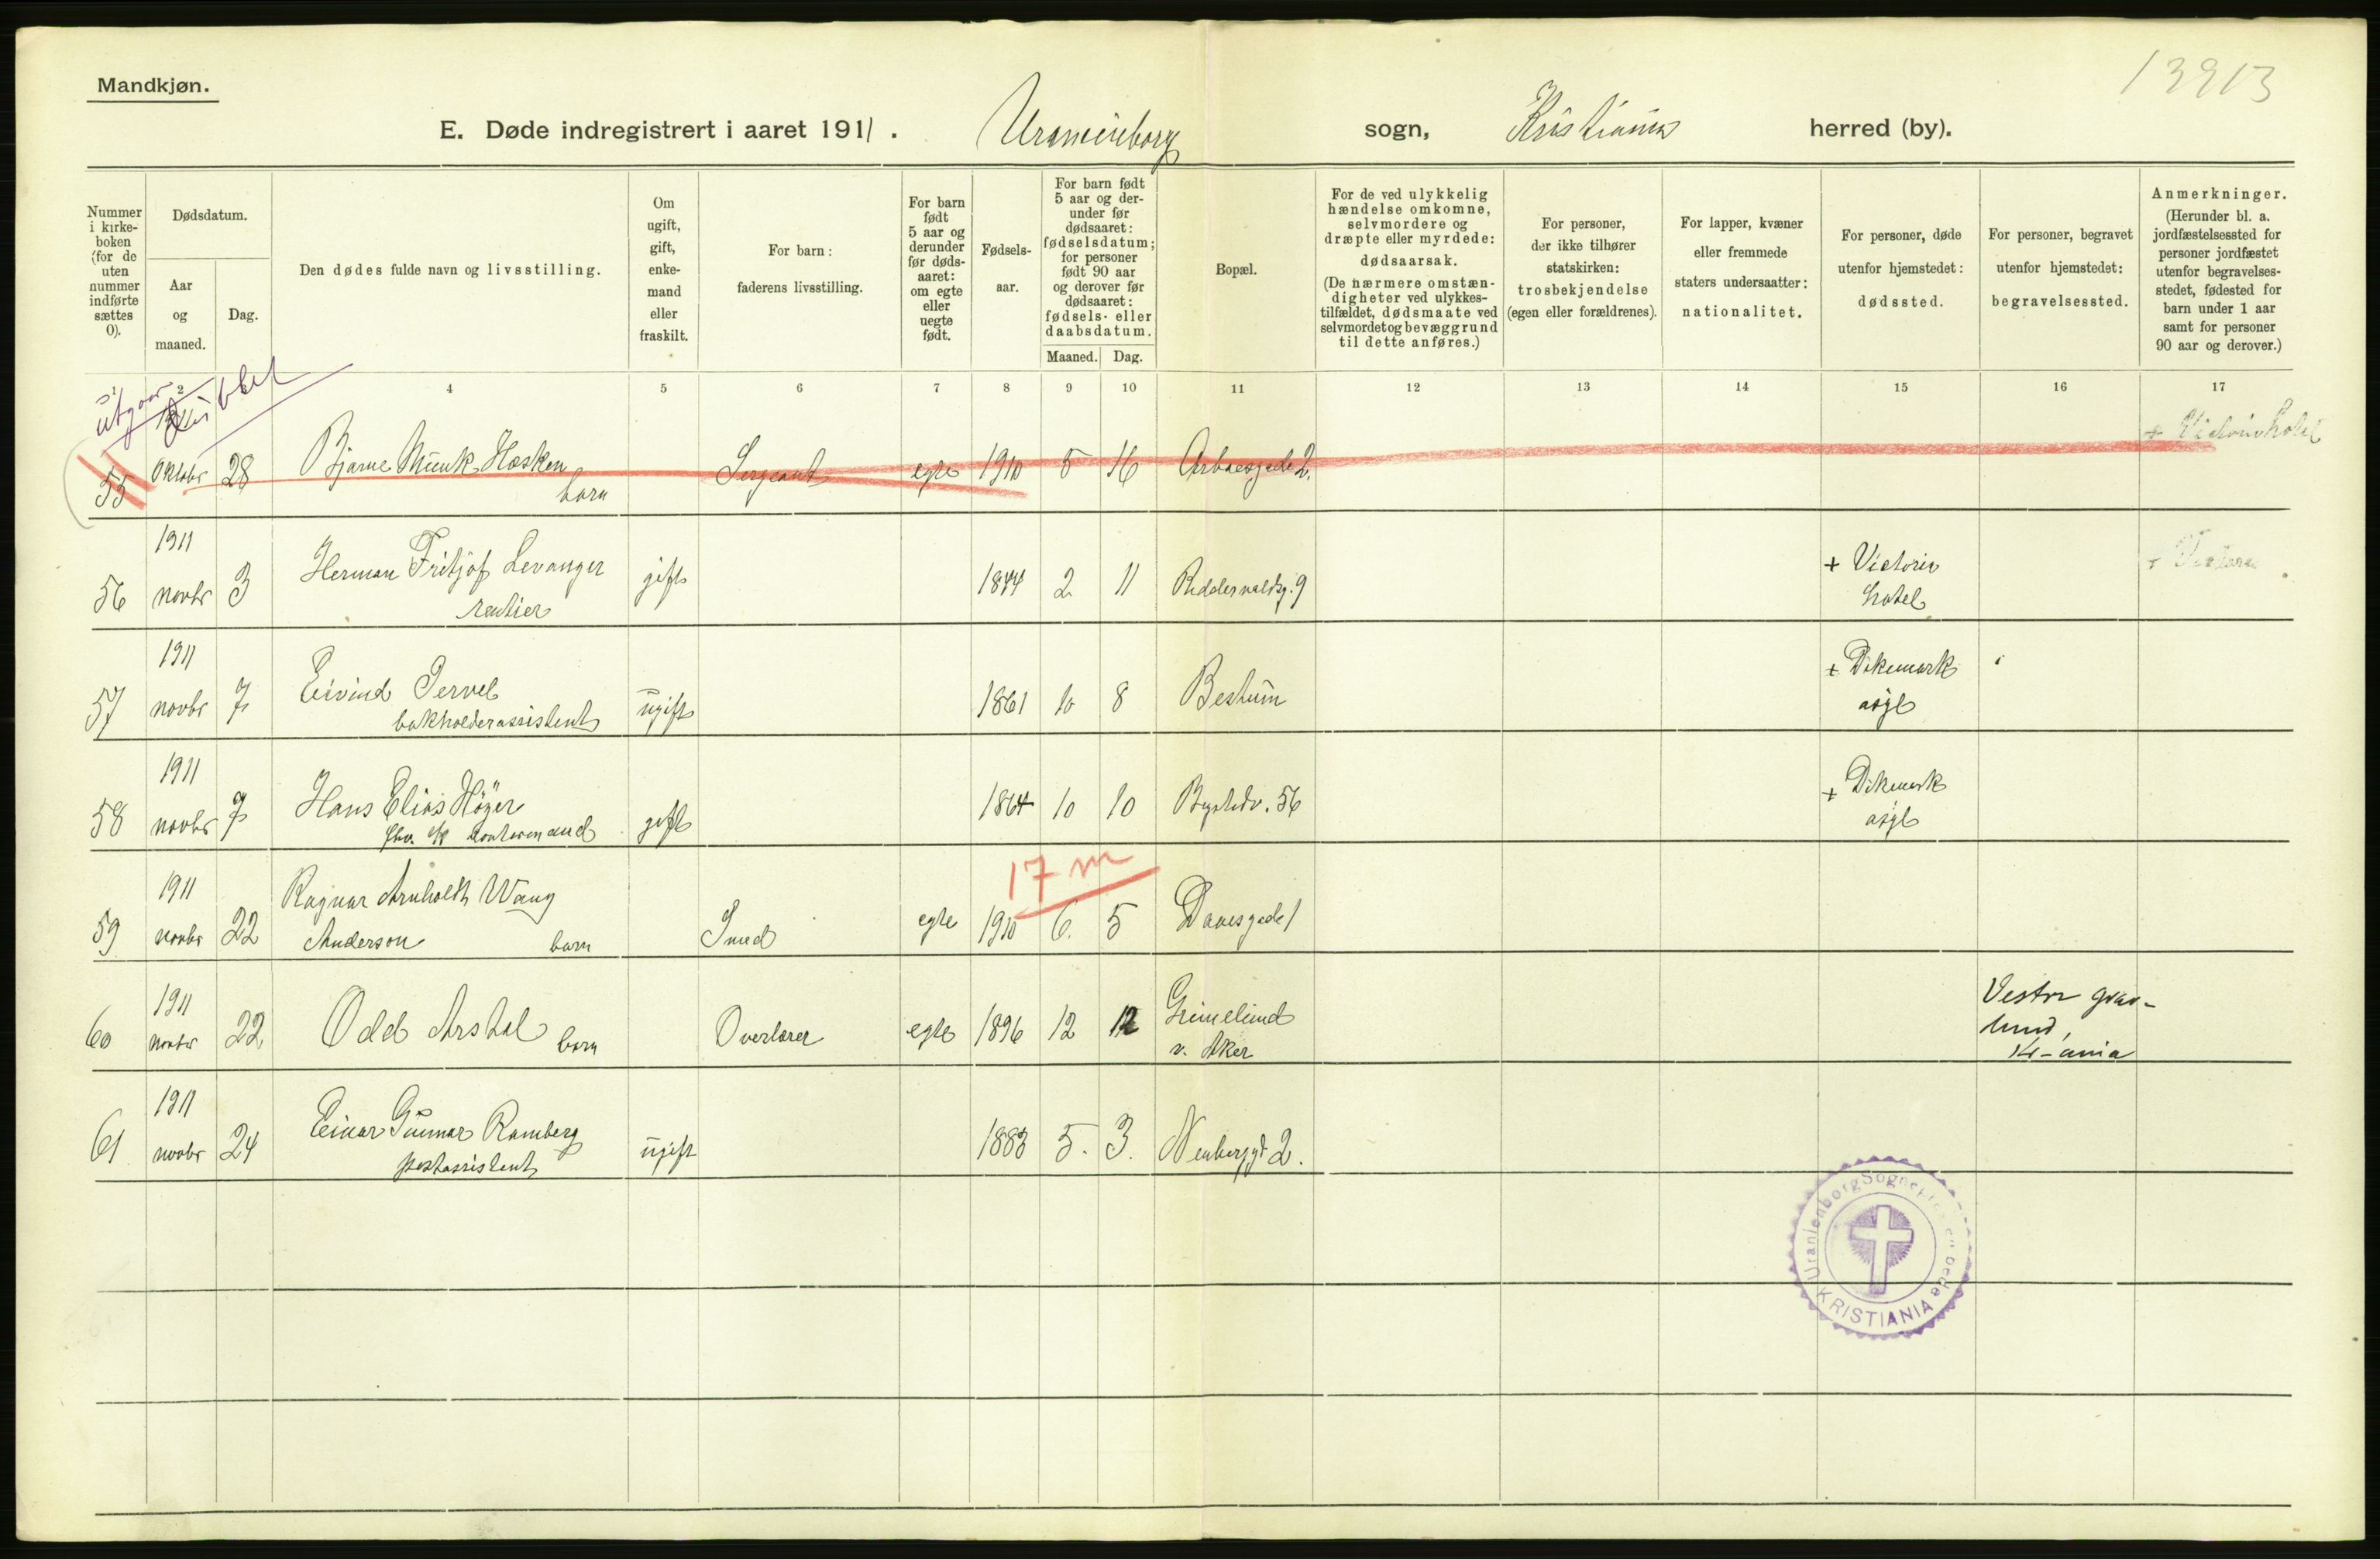 Mandkjøn.
13913
E. Døde indregistrert i aaret 1911. Uranienborg sogn, Kristiania herred (by).
Nummer i kirke-boken (for de uten nummer indførte sættes 0).
Dødsdatum.
Aar og maaned.
Dag.
Den dødes fulde navn og livsstilling.
Om ugift, gift, enke-mand eller fraskilt.
For barn: faderens livsstilling.
For barn født 5 aar og derunder før døds-aaret: om egte eller uegte født.
Fødsels-aar.
For barn født 5 aar og der-under før dødsaaret: fødselsdatum; for personer født 90 aar og derover før dødsaaret: fødsels- eller daabsdatum.
Maaned. Dag.
Bopæl.
For de ved ulykkelig hændelse omkomne, selvmordere og dræpte eller myrdede: dødsaarsak. (De nærmere omstæn-digheter ved ulykkes-tilfældet, dødsmaate ved selvmord et og bevæggrund til dette anføres.)
For personer, der ikke tilhører statskirken: trosbekjendelse (egen eller forældrenes).
For lapper, kvæner eller fremmede staters undersaatter: nationalitet.
For personer, døde utenfor hjemstedet: dødssted.
For personer, begravet utenfor hjemstedet: begravelsessted.
Anmerkninger. (Herunder bl. a. jordfæstelsessted for personer jordfæstet utenfor begravelses-stedet, fødested for barn under 1 aar samt for personer 90 aar og derover.)
1 2 4 5 6 7 8 9 10 11 12 13 14 15 16 17
utgaar
55 Oktobr 28 Bjarne Munk Hosken barn Sergeant egte 1910 5 16 + Victoria hotel
1911
56 novbr 3 Herman Fritjof Levanger rentier gift 1844 2 11 Riddervoldsg. 9 + Victoria hotel + Victoria
1911
57 novbr 7 Eivind Jervel bokholderassistent ugift 1861 10 8 Bestum + Dikemark asyl
1911
58 novbr 7 Hans Elias Höyer gift 1864 10 10 56 + Dikemark asyl
17 m
1911
59 novbr 22 Ragnar Arnholdt Wang Anderson barn Smed egte 1910 6. 5 Daaesgade 1
1911
60 novbr 22 Odd Arstal barn Overlærer egte 1896 12 12 Grimelund v. Aker Vestre grav-lund, Kr-ania
1911
61 novbr 24 Einar Gunnar Ramberg postassistent ugift 1883 5. 3. 2.
Uranienborg Sogneprest
KRISTIANIA